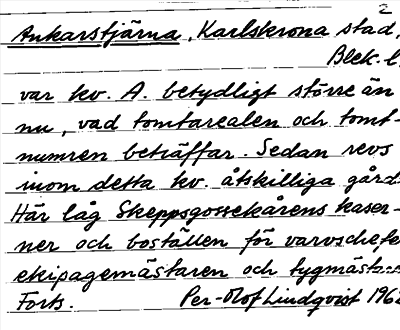 2
Ankarstjärna, Karlskrona stad,
Blek. l.
var kv. A. betydligt större än
nu, vad tomtarealen och tomt-
numren beträffar. Sedan revs
inom detta kv. åtskilliga gård
Här låg Skeppsgossekårens kaser-
ner och boställen för varvschefe
ekipagemästaren och tygmästa
Forts. Per-Olof Lindqvist 1962